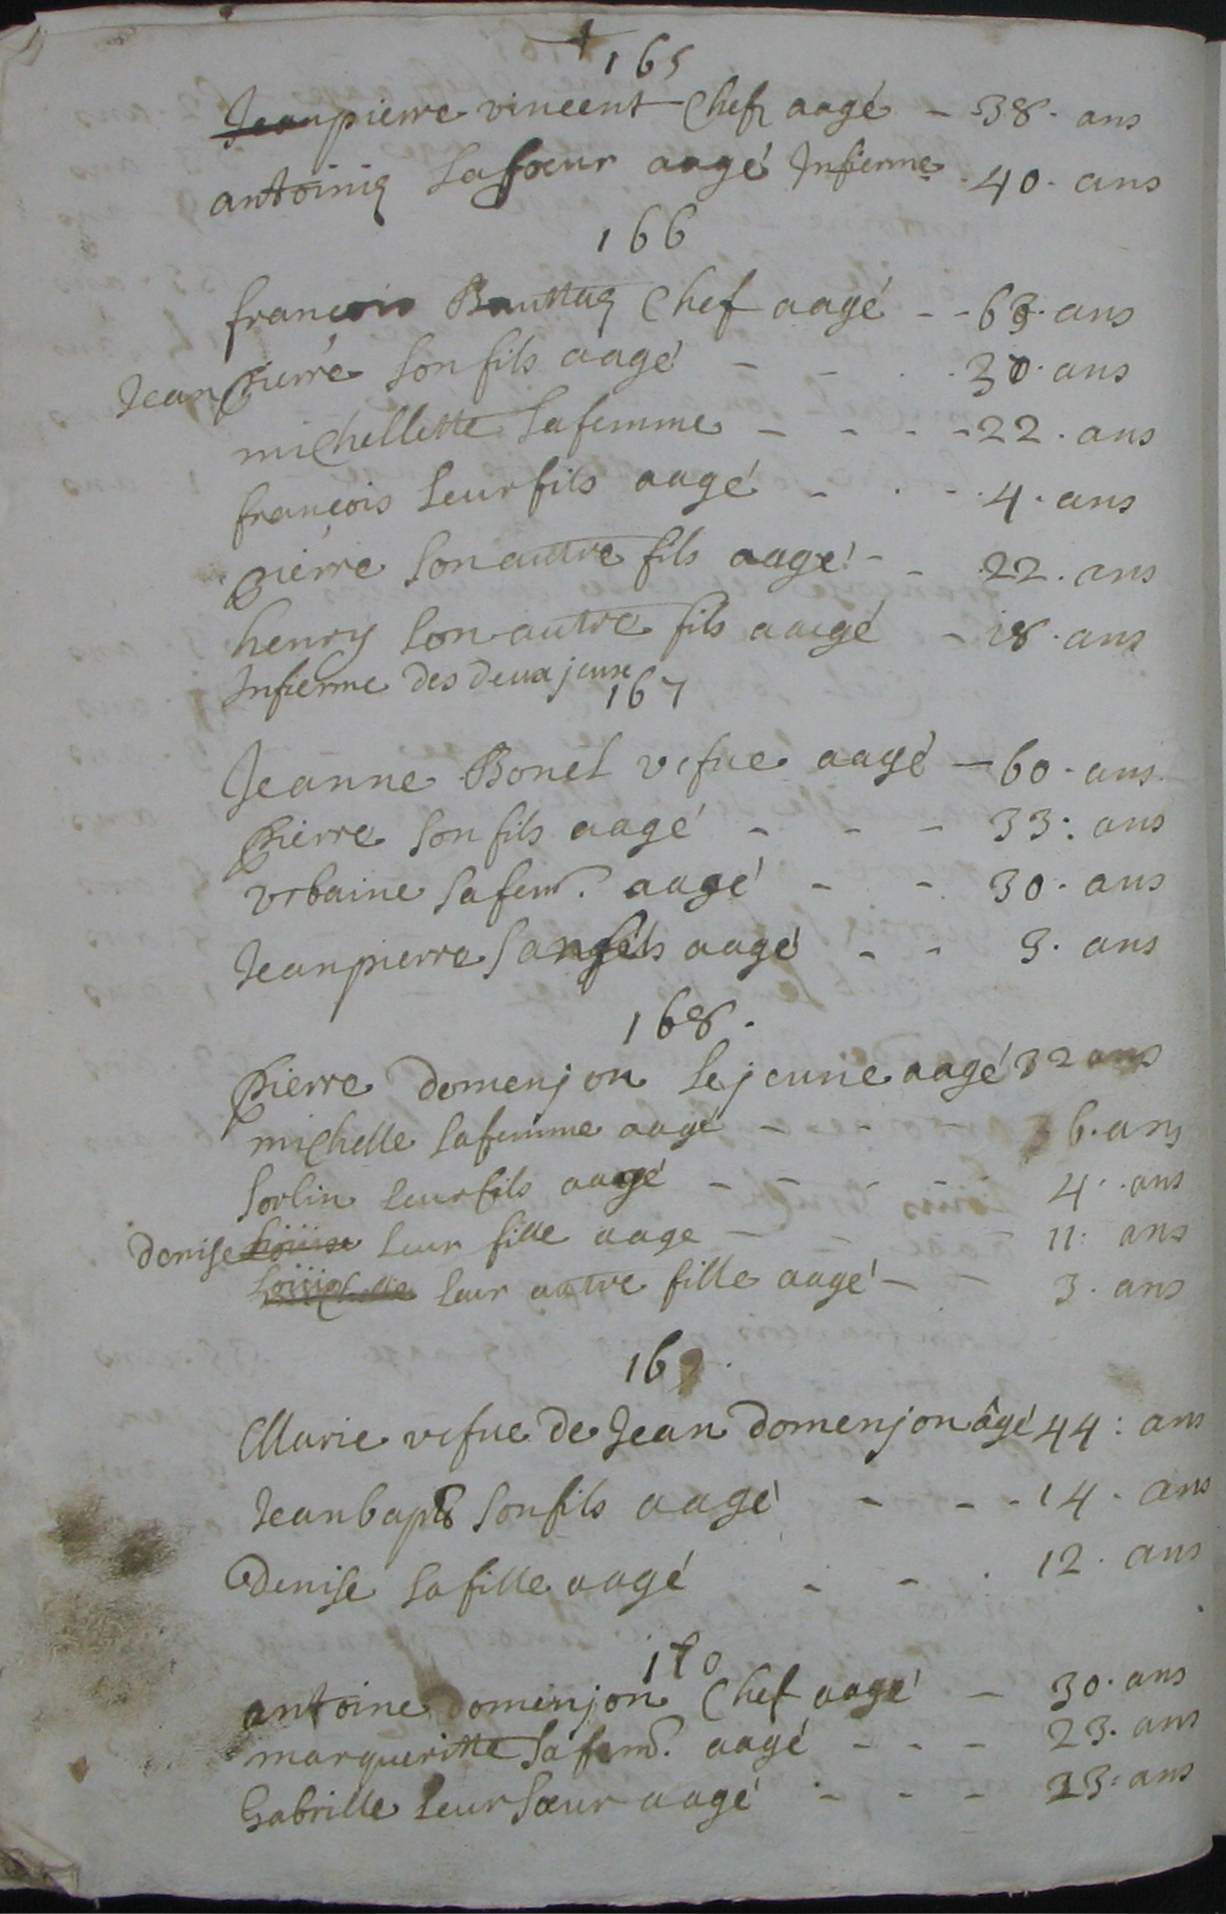 165
Jeanpierre vincent Chef aagé - 38. ans
antoinig sa sœur aagé Infierme 40. ans
166
françois Chef aagé - - 63. ans
Jean pierre son fils aagé - - 30. ans
michellette sa femme - - - - 22. ans
françois leur fils aagé - . - 4. ans
pierre son autre fils aagé - - 22. ans
henry son autre fils aaigé - 18. ans
Infierme des deux
167
Jeanne Bonel vefue aagé - 60. ans
pierre son fils aagé - - - 33: ans
vrbaine sa fem. aagé - - 30. ans
Jeanpierre son fils aagé - - 3. ans
168.
pierre domenjon le jeune aagé 32 ans
michelle sa femme aagé - - - 36. ans
Sorlin leur fils aagé - - - - - 4. ans
denise leur fille aage - - - 11: ans
leur autre fille aagé - - 3. ans
169.
Marie vefue de Jean domenjon âgé 44: ans
Jeanbapte son fils aagé - - - 14. ans
Denise sa fille aagé - - . 12. ans
170
antoine domenjon Chef aagé - 30. ans
margueritte sa fem. aagé - - - 23. ans
Gabrille leur sœur aagé - - - 23: ans